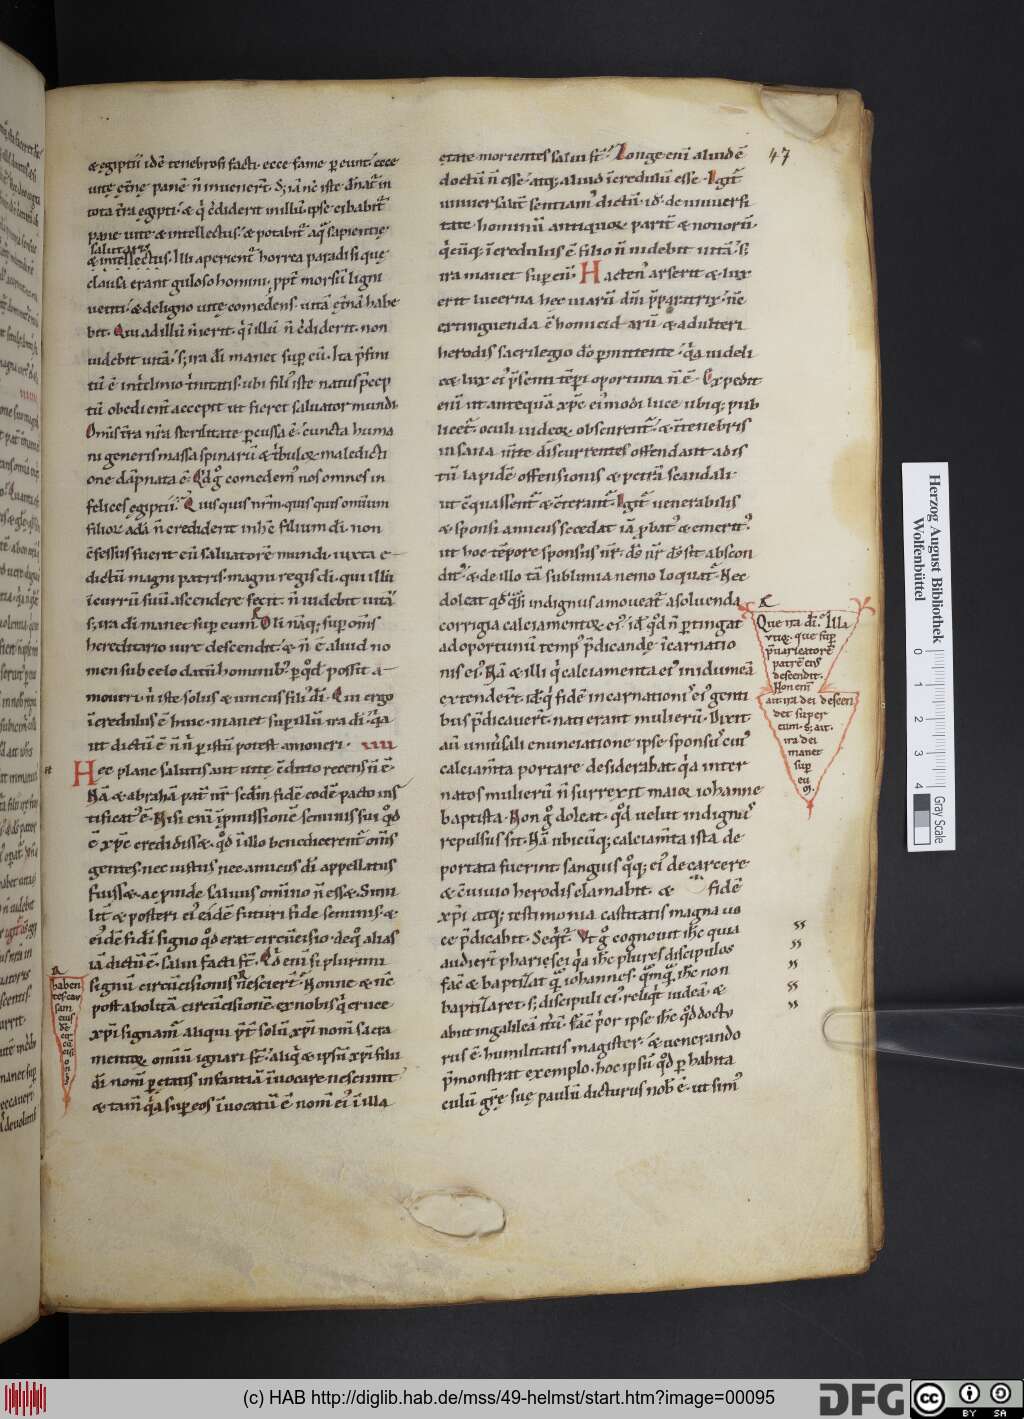 47
& egiptii idē tenebrosi facti. ecce fame pereunt. ecce
uitę et̄nę panē n̄ inuener̄t. S; iā nc̄ iste dn̄at̄ in
tota t̄ra egipti. & q̇ c̄diderit in illū. ipse cibabit̄
pane uite & intellectus. & potabit̄ aq̄ sapientię
salutaris
& intellectus. Illi aperient̄ horrea paradisi quę
clausa erant guloso homini. ppt̄ morsū ligni
uetiti. & de ligno uitę comedens. uitā et̄nā habe
bit. Qui ad illū n̄ uerit. q̇ illū n̄ c̄diderit. non
uidebit uitā. s; ira dī manet sup eū. Ita p̄fini
tū ē in t̄clinio t̄nitatis. ubi filius iste natus p̄cep
tū obedient̄ accepit ut fieret saluator mundi.
Om̄is t̄ra nr̄a sterilitate pcussa ē. cuncta huma
ni generis massa spinarū & t̄bulorum maledicti
one dāpnata ē. Qd g̊ comedem̄ nos omnes in
felices egiptii. Quisquis nr̄m. quisquis omnium
filiorum adā n̄ crediderit in hc̄ filium dī. non
c̄fessus fuerit eū saluatorē mundi. iuxta e
dictū magni patris. magni regis dī. qui illū
ī currū suū ascendere fecit. n̄ uidebit uitā.
s; ira dī manet sup eum. Oli nāq; sup om̄s
hereditario iure descendit. & n̄ ē aliud no
men sub celo datū hominib; p qd possit a
moueri. n̄ iste solus & unicus filius dī. Qui ergo
īcredulus ē huic. manet sup illū ira dī. q̄a
ut dictū ē n̄ n̄ p istū potest amoueri. VIII
Hec plane salutis aut uite c̄ditio recens n̄ ē.
Nā & abrahā pat̄ nr̄ sedm̄ fidē eodē pacto ius
tificat̄ ē. Nisi enī īpmissionē seminis sui qd
ē xp̄c credidisset. qd ī illo benedicerent̄ om̄s
gentes. nec iustus nec amicus dī appellatus
fuisset. ac pinde saluus omīno n̄ esset. Simi
lit̄ & posteri ei eādē futuri fide seminis. &
ei dē fidei signo qd erat circūcisio. aeq̄ alias
iā dictū ē. salui facti st̄. Qd enī si plurimi
signū circūcisionis nescier̄t. Nonne & nc̄
post abolitā circūcisionē. ex nobis q̇ cruce
xp̄i signam̄. aliqui p̄t solū xp̄i nom̄ sacra
mentorum omniū ignari st̄. aliq̇ & ipsū xp̄i filii
dī nom̄ p etatis infantiā īuocare nesciunt.
& tam̄ q̄a sup eos īuocatū ē nom̄ ei ī illa
haben
tes car
nam
eius
dē
ętate morientes salui st̄. Longe enī aliud ē
doctū n̄ esse. atq; aliud īcredulū esse. Igit̄
uniuersalit̄ sentiam dictū. id. de uniuersi
tate hominū antiquorum parit̄ & nouorū.
q̇cūq; īcredulus ē filio n̄ uidebit uitā. s;
ira manet sup eū. Hacten asserit & lux
erit lucerna hec uiarū dn̄i p̄paratrix. nc̄
extinguenda ē homicidarū & adulteri
herodis sacrilegio dō pmittente. q̄a uideli
cet lux ei p̄senti tēpi oportuna n̄ ē. Expedit
enī ut antequā xp̄c ei modi luce ubiq; pub
licet̄. oculi iudeorum obscurent̄. & ī tenebris
insania mīte discurrentes offendant ad is
tū lapidē offensionis & petrā scandali
ut c̄quassent̄ & c̄terant̄. Igit̄ uenerabilis
& sponsi amicus secedat iā pbat & emerit.
ut hoc tēpore sponsus nr̄. ds̄ nr̄ ds̄ sit abscon
dit. & de illo tā sublimia nemo loquat̄. Nec
doleat qd qs̄i indignus amoueat̄ a soluenda
corrigia calciamentorum ei. id qd n̄ ptingat
ad oportunū temp p̄dicande īcarnatio
nis ei. Nā & illi q̇ calciamenta ei in idumeā
extender̄t. id q̇ fidē incarnationis ei genti
bus p̄dicauer̄t. nati erant mulierū. Dixit
aū uniūsali enunciatione ipse sponsus cui
calciam̄ta portare desiderabat. q̄a inter
natos mulierū n̄ surrexit maior iohanne
baptista. Non g̊ doleat. qd uelut indignus
repulsus sit. Nā ubicūq; calciam̄ta ista de
portata fuerint. sanguis qq; ei de carcere
& c̄uiuio herodis clamabit. & fidē
xp̄i atq; testimonia castitatis magna uo
ce p̄dicabit. Seqt̄. Ut g̊ cognouit ih̄c quia
audier̄t pharisei q̄a ih̄c plures discipulos
fac̄ & baptizat q̄ iohannes. q̄mq̄ ih̄c non
baptizaret. s; discipuli ei. reliqt̄ iudeā. &
abiit in galileā it̄ū. Fac̄ p̄or ipse ih̄c qd docto
rus ē. humilitatis magister. & uenerando
p̄monstrat exemplo. hoc ipsū qd p habita
culū gr̄e suę paulū dicturus nob ē. ut simus
Que ira dī. Illa
utiq. que sup
p̄uaricatorē
patrē eis
descendit.
Non enī
ait. ira dei descen
det super
eum. s; ait.
ira dei
manet
sup
eū
Herzog August Bibliothek
Wolfenbüttel
0 1 2 3 4
Gray Scale
(c) HAB http://diglib.hab.de/mss/49-helmst/start.htm?image=00095
DFG
cc BY SA